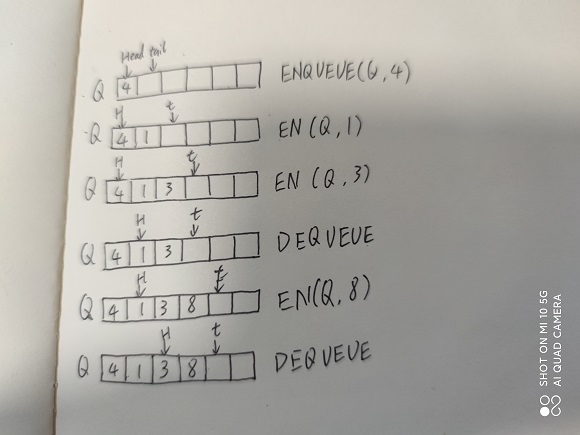 Head tail
Q 4 ENQUEUE(Q,4)
H t
Q 4 1 EN(Q,1)
H t
Q 4 1 3 EN(Q,3)
H t
Q 4 1 3 DEQUEUE
H t
Q 4 1 3 8 EN(Q,8)
H t
Q 4 1 3 8 DEQUEUE
SHOT ON MI 10 5G
AI QUAD CAMERA